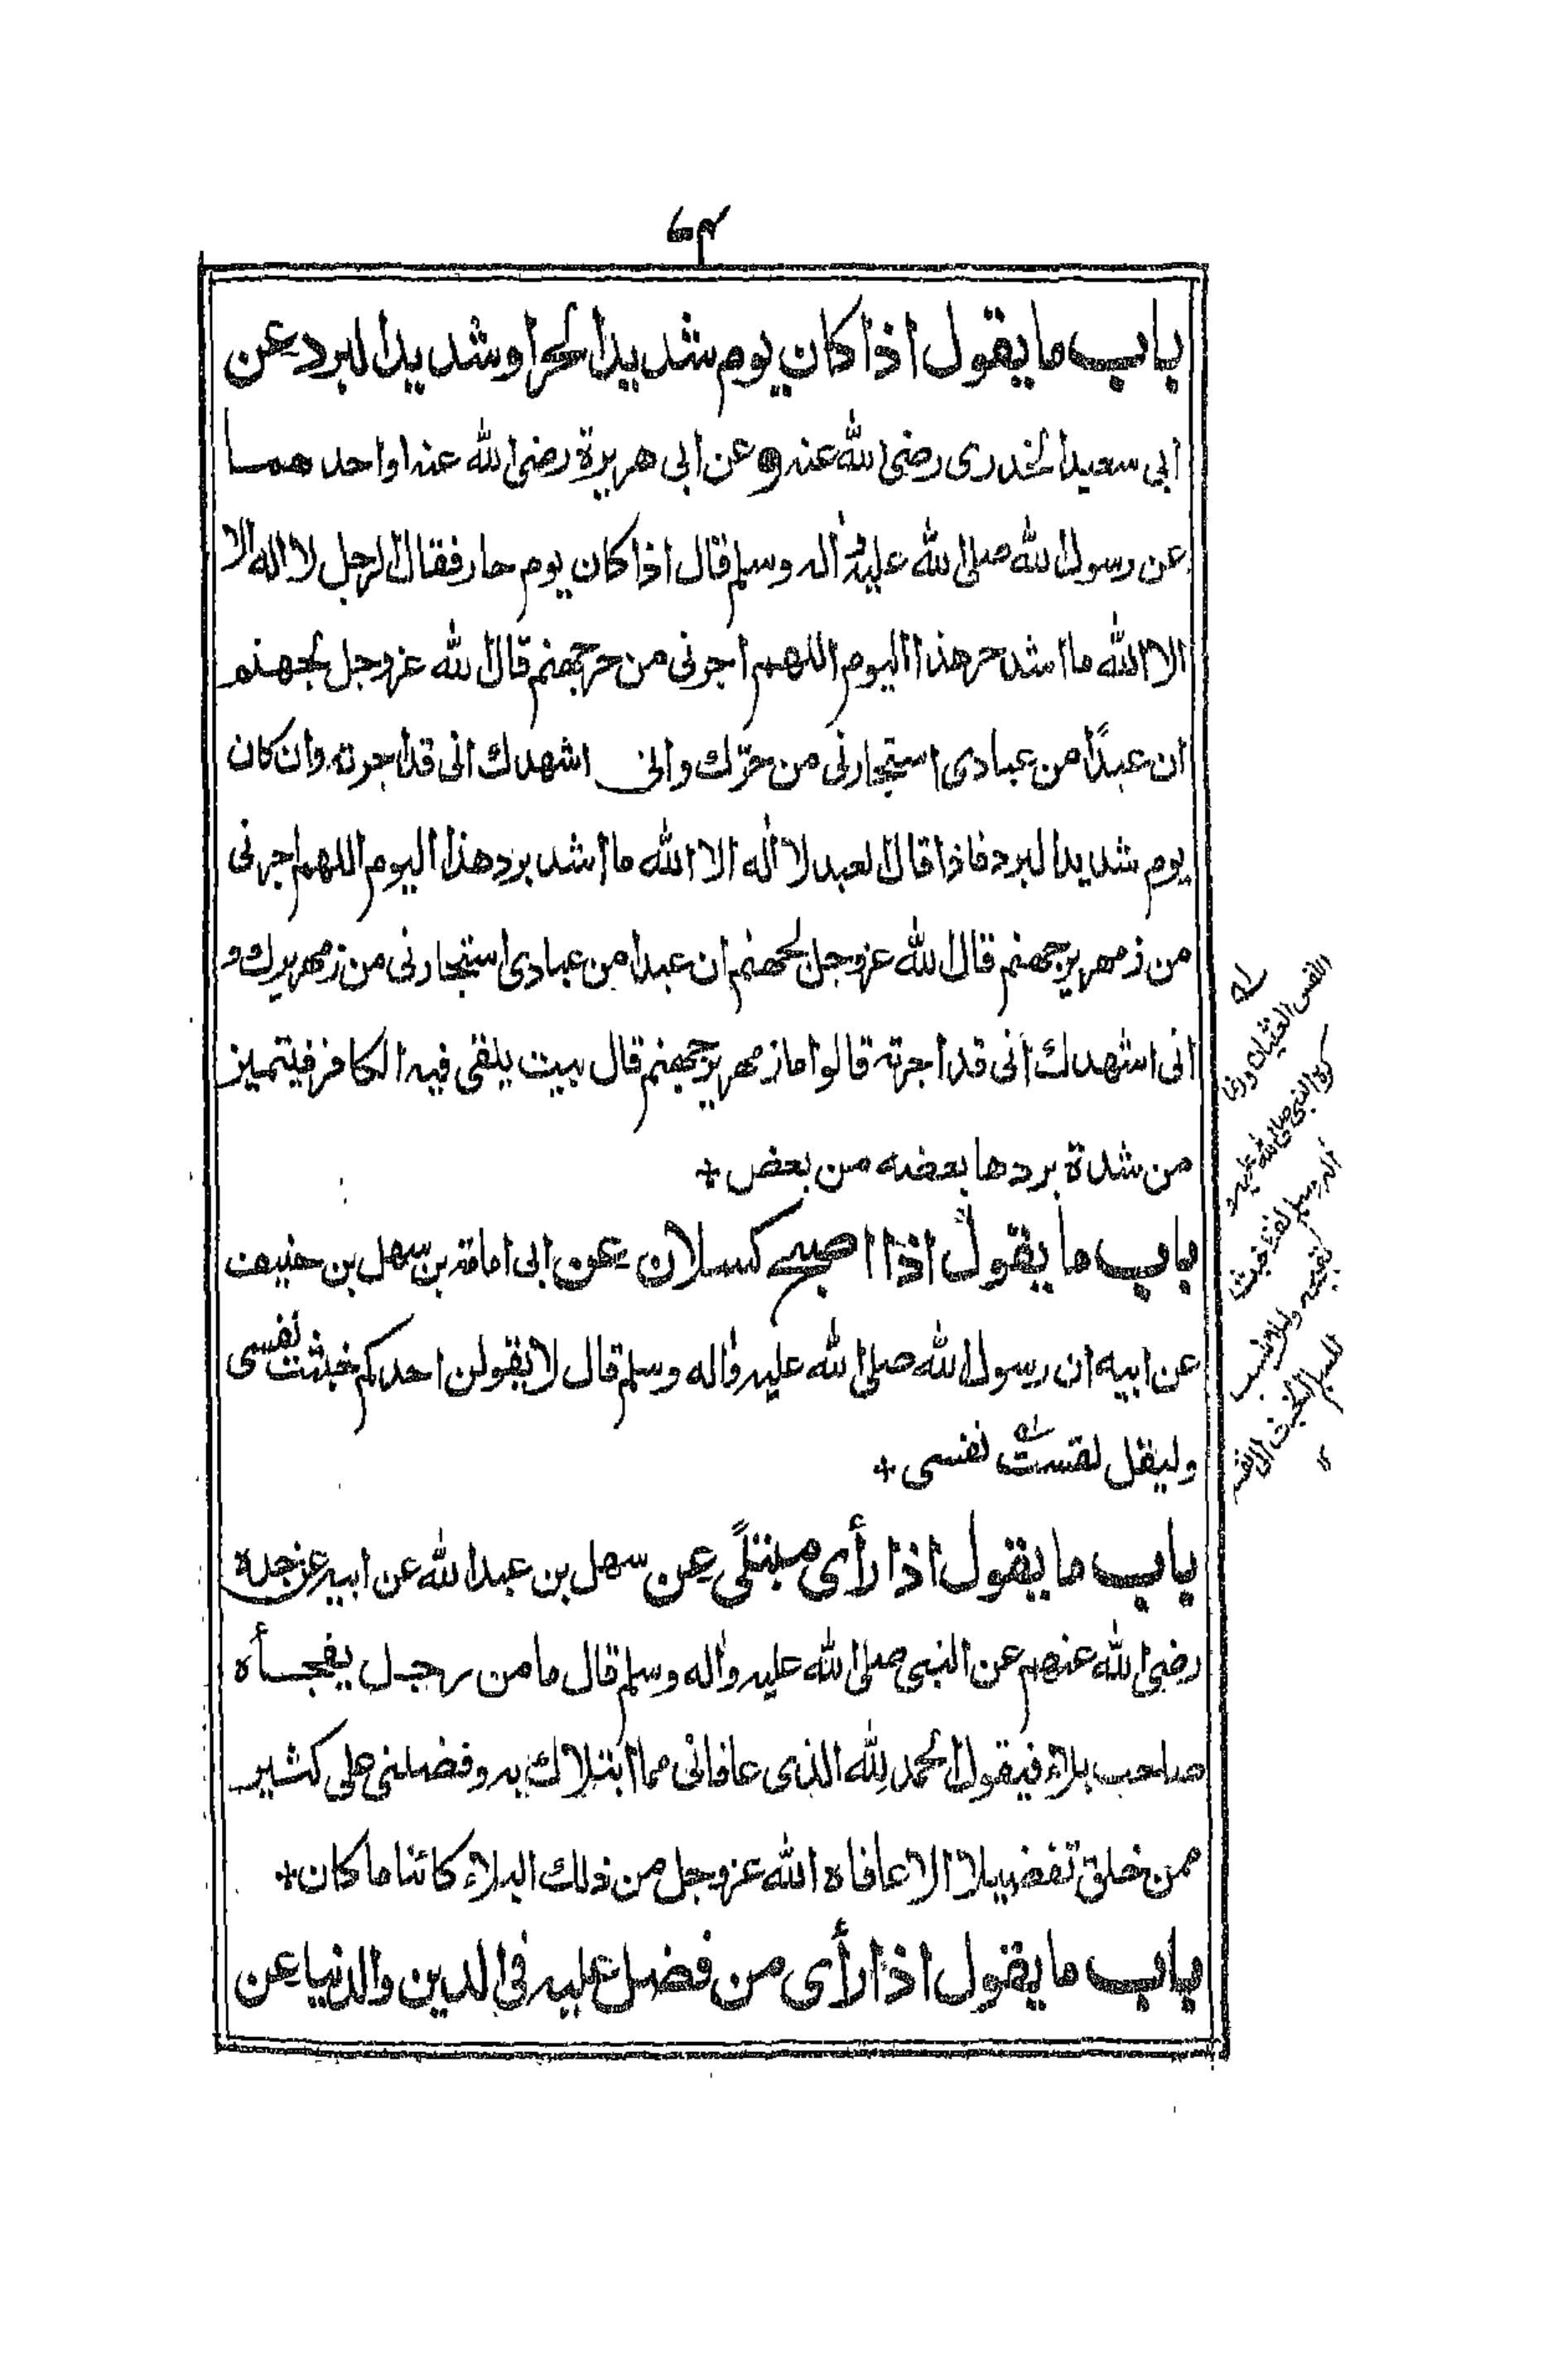 باب ما يقول اذا كان يوم شديد الحر او شديد البرد عن
ابى سعيد الخدرى رضى الله عنه و عن ابى هريرة رضى الله عنه او احدهما
عن رسول الله صلى الله عليه و اله وسلم قال اذا كان يوم حار فقال الرجل لا اله الا
الا الله ما اشد حر هذا اليوم اللهم اجرنى من حر جهنم قال الله عز وجل لجهنم
ان عبدًا من عبادى استجارنى من حرّك وانى اشهدك انى قد اجرته وان كان
يوم شديد البرد فاذا قال العبد لا اله الا الله ما اشد برد هذا اليوم اللهم اجرنى
من زمهرير جهنم قال الله عز وجل لجهنم ان عبدا من عبادى استجارنى من زمهريرك و
انى اشهدك انى قد اجرته قالوا ما زمهرير جهنم قال بيت يلقى فيه الكافر فيتميز
من شدة بردها بعضه من بعض +
باب ما يقول اذا اصبح كسلان عن ابى امامة بن سهل بن حنيف
عن ابيه ان رسول الله صلى الله عليه واله وسلم قال لا يقولن احدكم خبثت نفسى
وليقل لقست نفسى +
باب ما يقول اذا رأى مبتلًى عن سهل بن عبد الله عن ابيه عن جده
رضى الله عنهم عن النبى صلى الله عليه واله وسلم قال ما من رجل يفجأه
صاحب بلاء فيقول الحمد لله الذى عافانى مما ابتلاك به وفضلنى على كثير
ممن خلق تفضيلا الا عافاه الله عز وجل من ذلك البلاء كائنا ما كان +
باب ما يقول اذا رأى من فضل عليه فى الدين والدنيا عن
كره النبى صلى الله عليه و
اله وسلم لفظ خبث